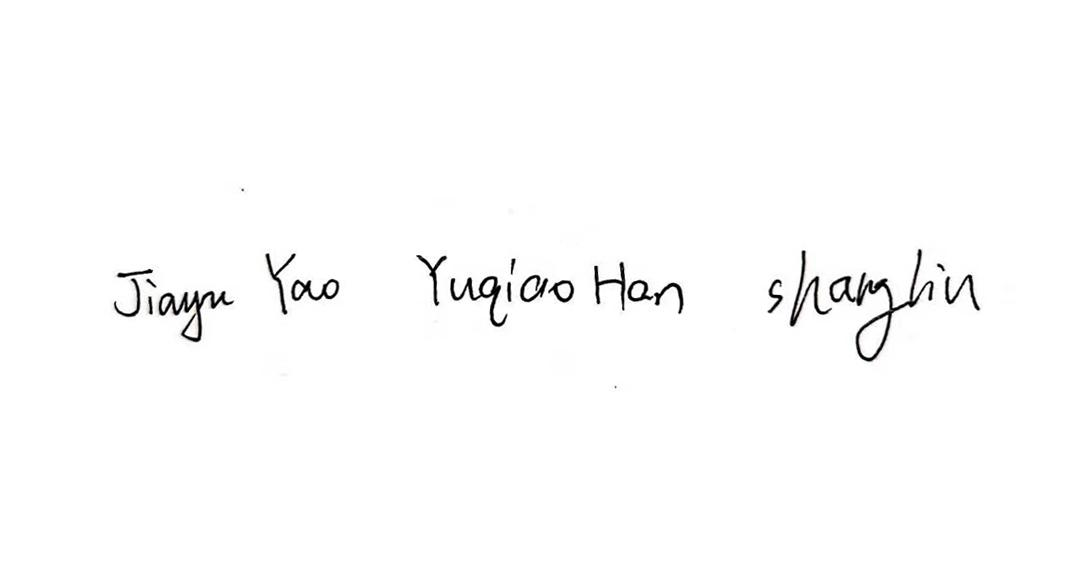 Jiayu Yao Yuqiao Han shanglin